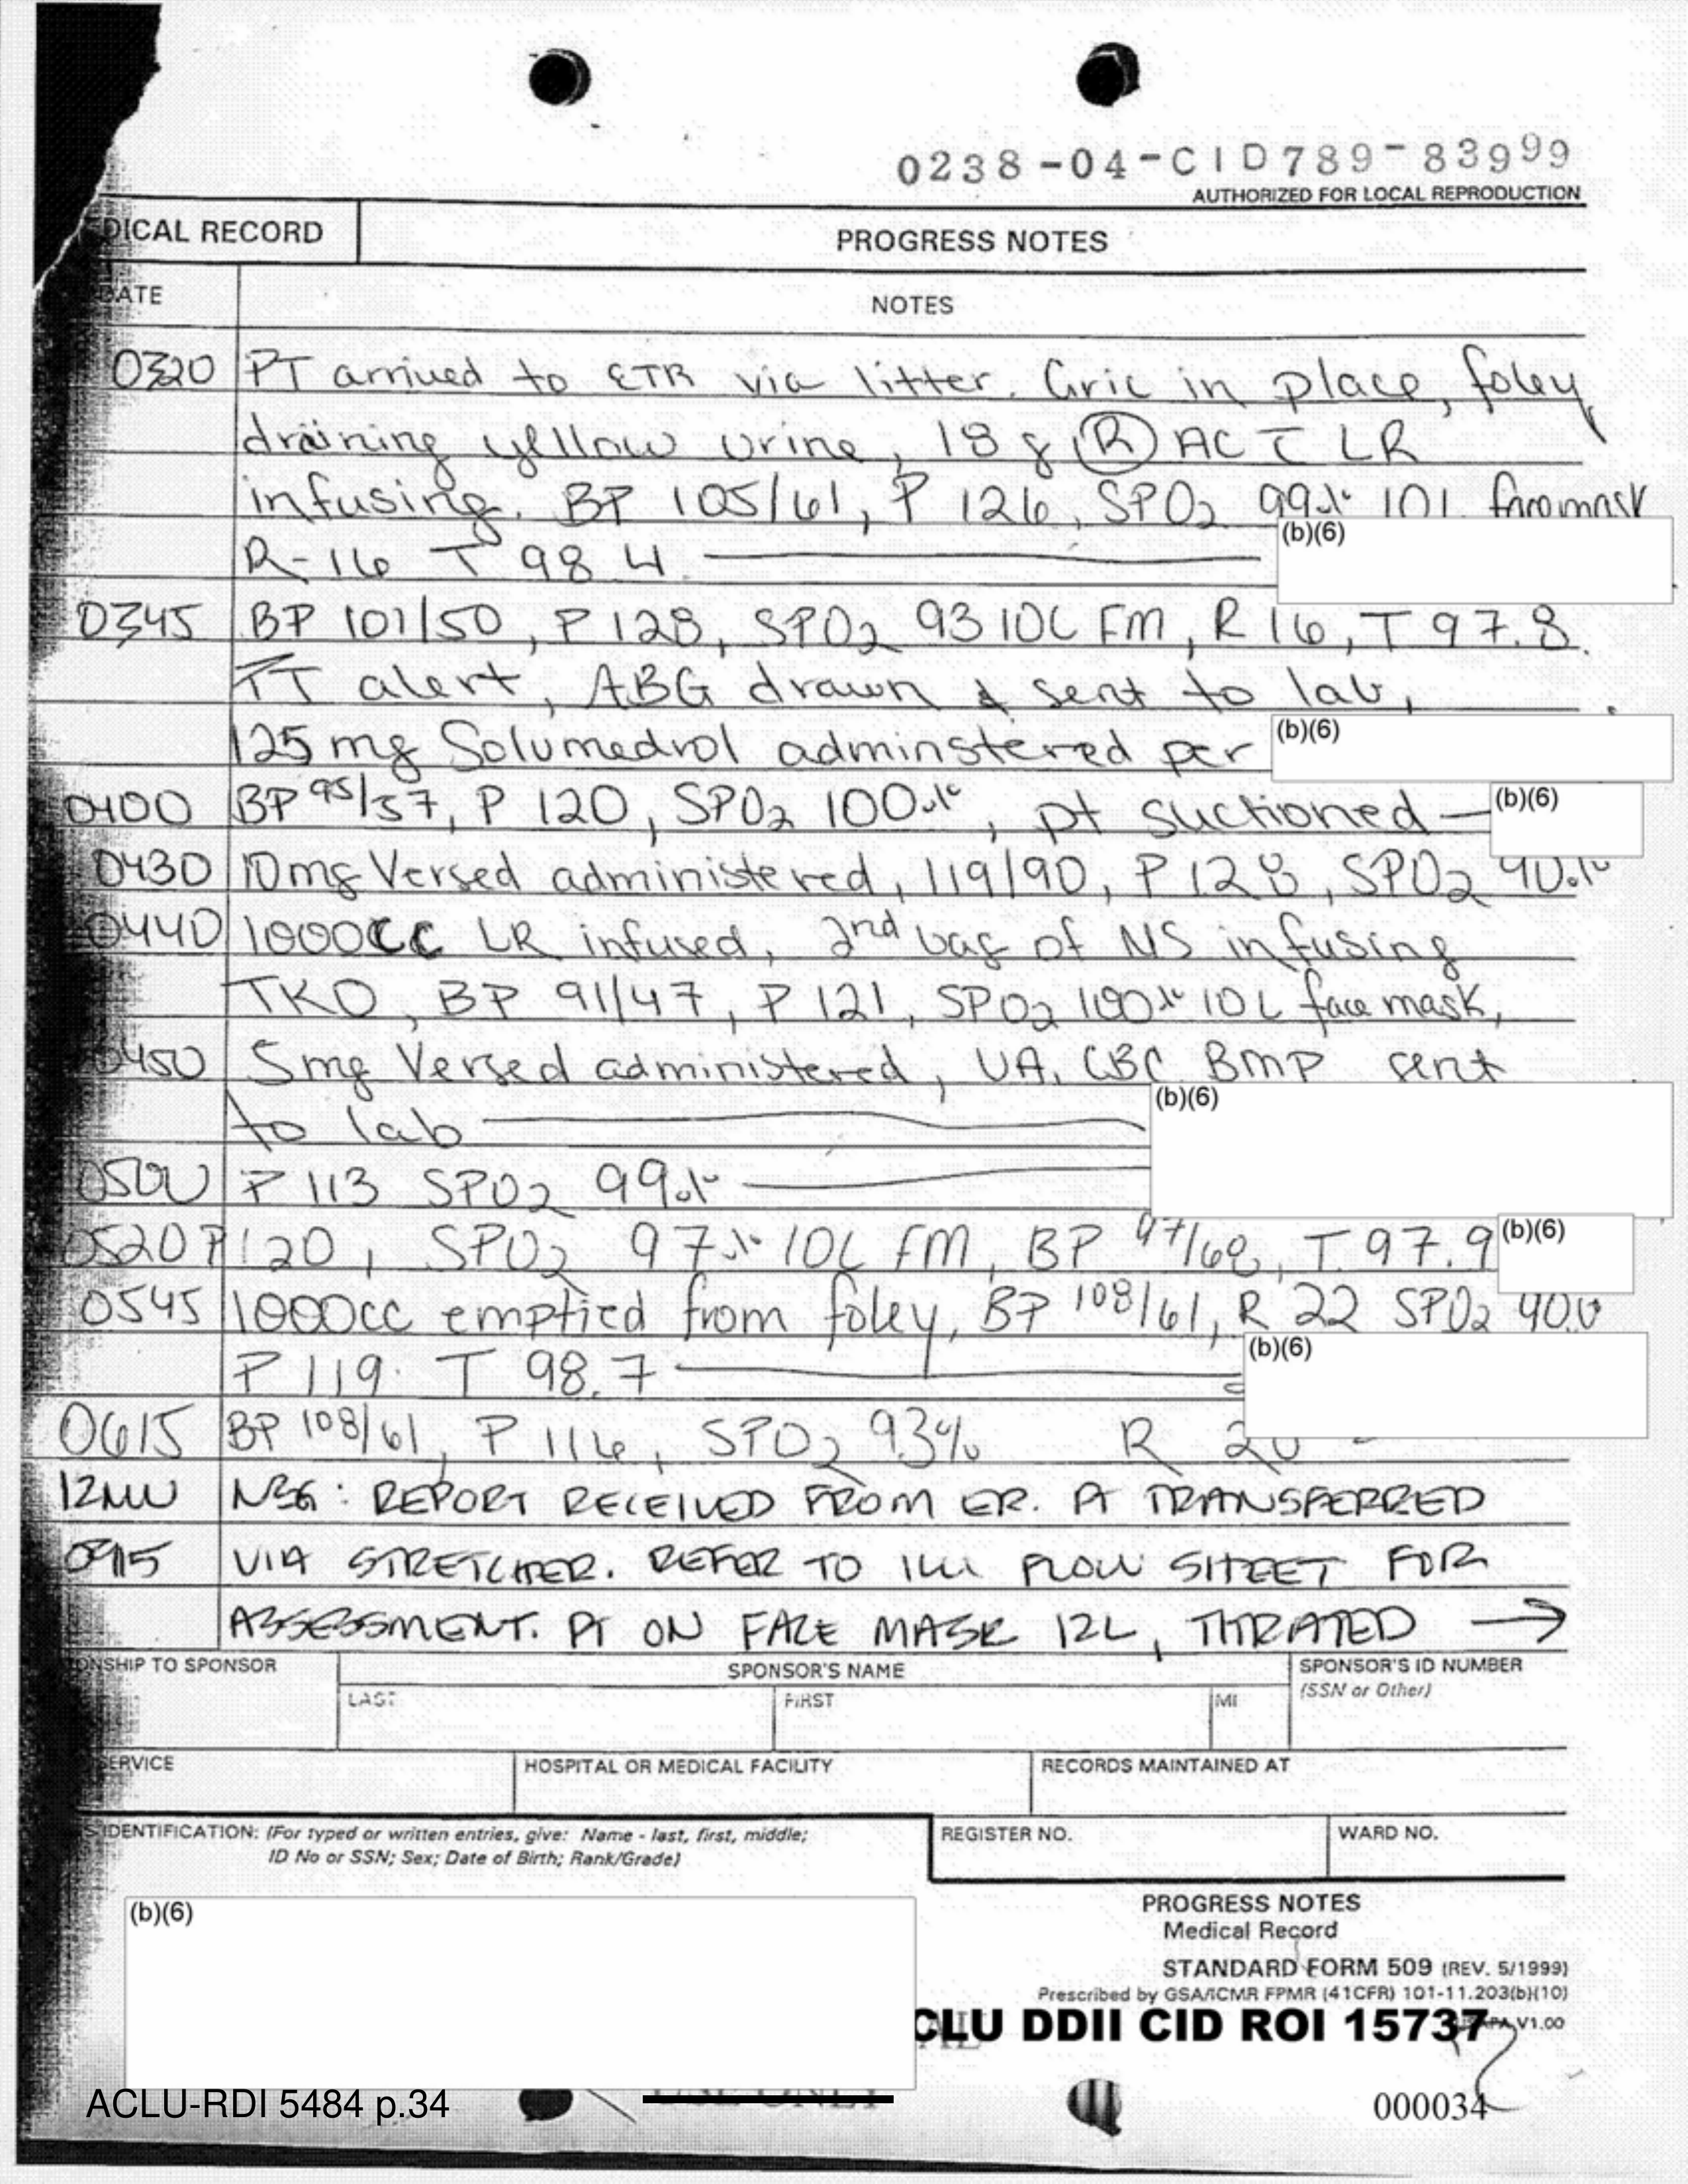 0238-04-CID789-83999
AUTHORIZED FOR LOCAL REPRODUCTION
DICAL RECORD
PROGRESS NOTES
DATE
NOTES
0320 PT arrived to ETR via litter. Cric in place, foley
draining yellow urine, 18 g (R) AC c̄ LR
infusing. BP 105/61, P 126, SPO2 99% 10L facemask
R-16 T 98.4
(b)(6)
0345 BP 101/50, P 128, SPO2 93 10L FM, R 16, T 97.8.
PT alert, ABG drawn & sent to lab,
125 mg Solumedrol adminstered per
(b)(6)
0400 BP 95/57, P 120, SPO2 100%, pt suctioned
(b)(6)
0430 10mg Versed administered, 119/90, P 128, SPO2
0440 1000cc LR infused, 2nd bag of NS infusing
TKO, BP 91/47, P 121, SPO2 100% 10L face mask,
0450 5mg Versed administered, UA, CBC BMP sent
to lab
(b)(6)
0500 P 113 SPO2 99%
0520 P 120, SPO2 97% 10L FM, BP 97/68, T. 97.9
(b)(6)
0545 1000cc emptied from foley, BP 108/61, R 22 SPO2
P 119. T 98.7
(b)(6)
0615 BP 108/61, P 116, SPO2 93% R 20
NSG: REPORT RECEIVED FROM ER. PT TRANSFERRED
VIA STRETCHER. REFER TO ICU FLOW SHEET FOR
ASSESSMENT. PT ON FACE MASK 12L, →
ONSHIP TO SPONSOR
SPONSOR'S NAME
SPONSOR'S ID NUMBER
(SSN or Other)
LAST
FIRST
MI
SERVICE
HOSPITAL OR MEDICAL FACILITY
RECORDS MAINTAINED AT
S IDENTIFICATION: (For typed or written entries, give: Name - last, first, middle;
ID No or SSN; Sex; Date of Birth; Rank/Grade)
REGISTER NO.
WARD NO.
(b)(6)
PROGRESS NOTES
Medical Record
STANDARD FORM 509 (REV. 5/1999)
Prescribed by GSA/ICMR FPMR (41CFR) 101-11.203(b)(10)
V1.00
CLU DDII CID ROI 15737
ACLU-RDI 5484 p.34
000034